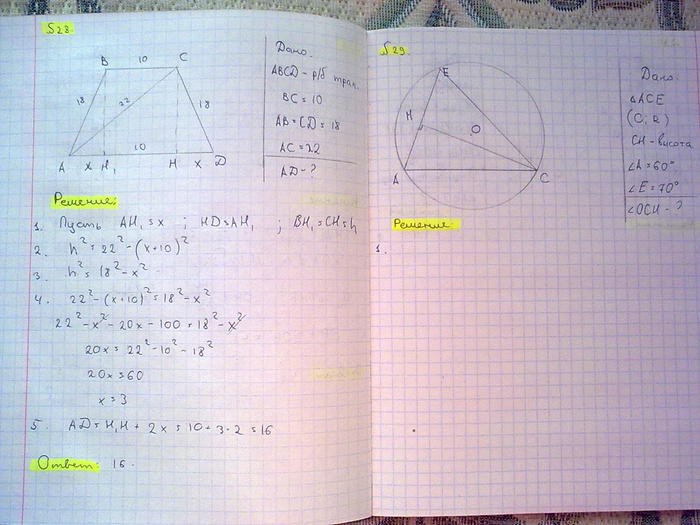 №28.
B 10 C
18 22 18
10
A x H₁ H x D
Дано:
ABCD - р/б трап.
BC = 10
AB = CD = 18
AC = 22
AD - ?
Решение:
1. Пусть AH₁ = x ; HD = AH₁ ; BH₁ = CH = h
2. h² = 22² - (x+10)²
3. h² = 18² - x²
4. 22² - (x+10)² = 18² - x²
22² - x² - 20x - 100 = 18² - x²
20x = 22² - 10² - 18²
20x = 60
x = 3
5. AD = H₁H + 2x = 10 + 3·2 = 16
Ответ: 16.
№29.
E
H O
A C
Дано:
△ACE
(O; R)
CH - высота
∠A = 60°
∠E = 70°
∠OCH - ?
Решение:
1.